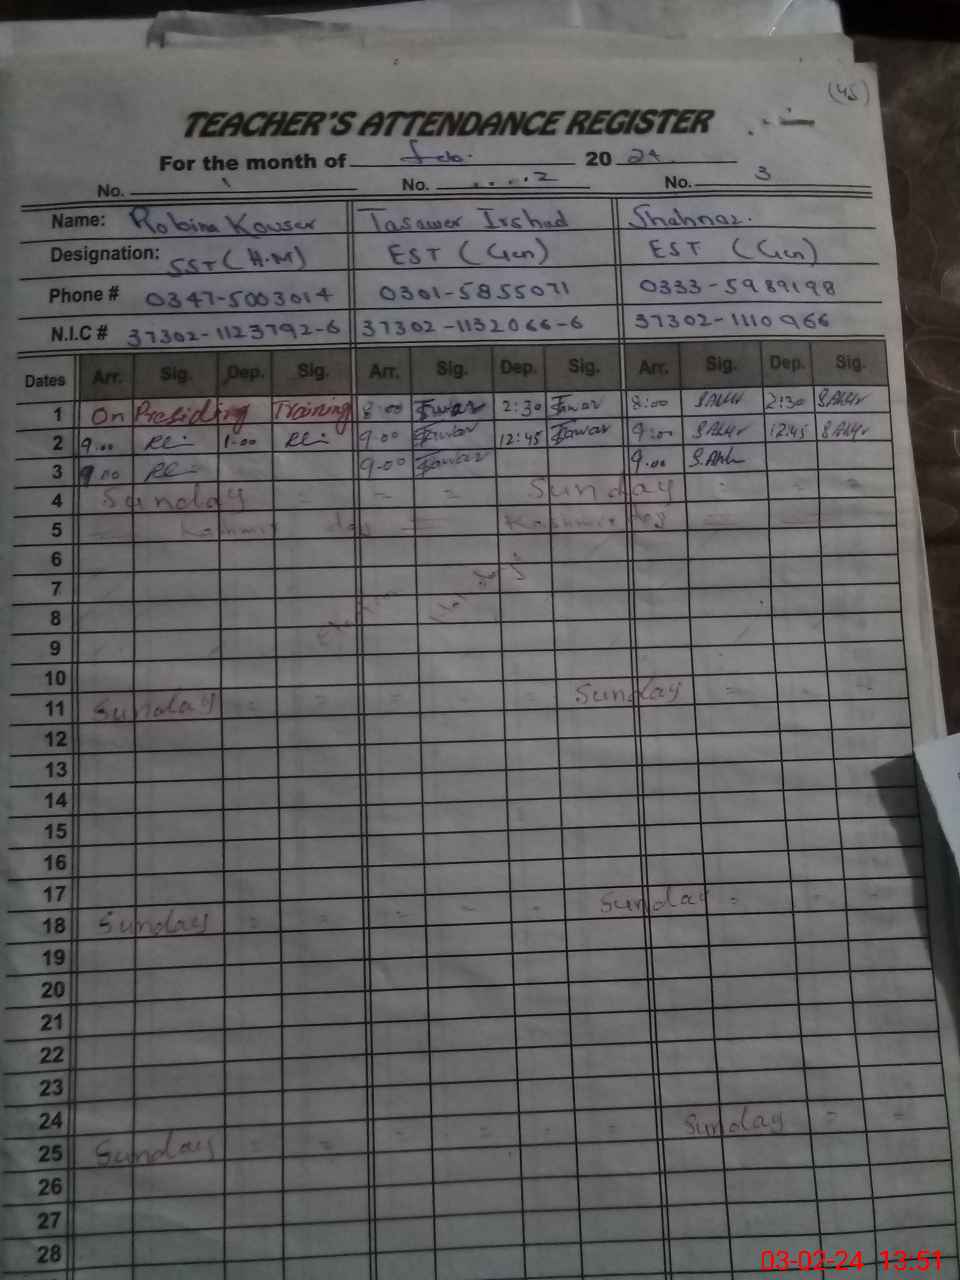 (45)
TEACHER'S ATTENDANCE REGISTER
For the month of Feb. 20 24
No. 1 No. ....2 No. 3
Name: Robina Kouser Tasawer Irshad Shahnaz.
Designation: SST (H.M) EST (Gen) EST (Gen)
Phone # 0347-5003014 0301-5855071 0333-5989198
N.I.C # 37302-1123792-6 37302-1132066-6 37302-1110966
Dates Arr. Sig. Dep. Sig. Arr. Sig. Dep. Sig. Arr. Sig. Dep. Sig.
1 On Presiding Training 8:00 2:30 8:00 2:30
2 9.00 1.00 9.00 12:45 9:00 12:45
3 9.00 9.00 9.00
4 Sunday = = = Sunday = = =
5 Kashmir day = Kashmir day
6
7
8 election Holidays
9
10
11 Sunday = = = - - Sunday = - -
12
13
14
15
16
17
18 Sunday = = = - - Sunday = - -
19
20
21
22
23
24
25 Sunday = = = = - = Sunday = -
26
27
28
03-02-24 13:51